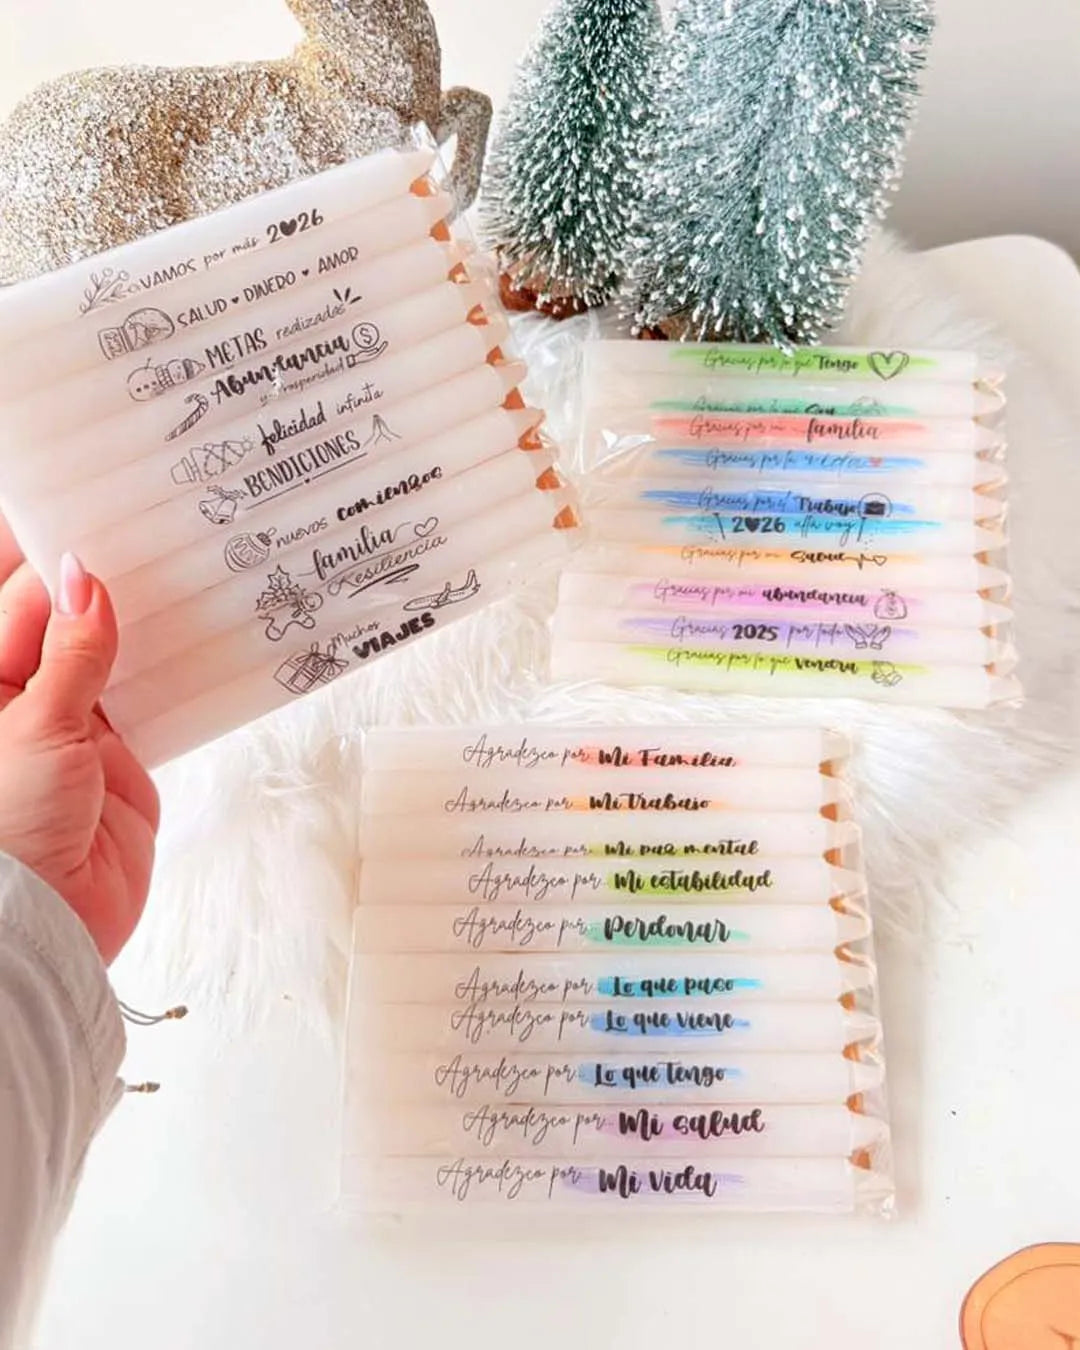 VAMOS por más 2026
SALUD DINERO AMOR
METAS realizadas
Abundancia
y prosperidad
felicidad infinita
BENDICIONES
nuevos comienzos
familia
Resiliencia
Muchos
VIAJES
Gracias por lo que Tengo
Gracias por lo que Soy
Gracias por mi familia
Gracias por la
Gracias por el Trabajo
2026 allá voy
Gracias por mi salud
Gracias por mi abundancia
Gracias 2025 por todo
Gracias por lo que vendrá
Agradezco por Mi Familia
Agradezco por Mi trabajo
Agradezco por Mi paz mental
Agradezco por Mi estabilidad
Agradezco por Perdonar
Agradezco por Lo que paso
Agradezco por Lo que viene
Agradezco por Lo que tengo
Agradezco por Mi salud
Agradezco por Mi vida